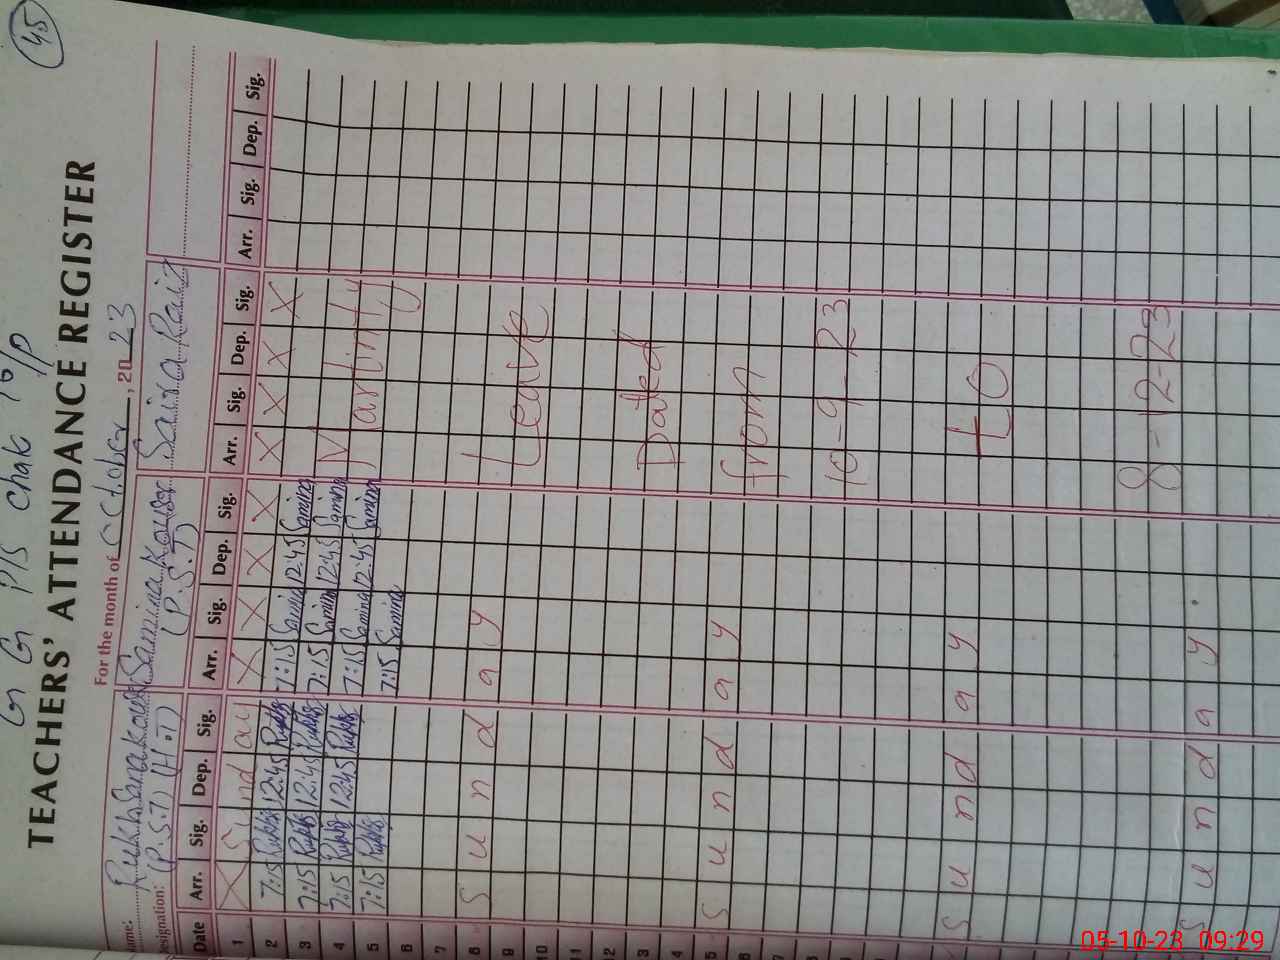 45
G G P/S Chak 16/P
TEACHERS' ATTENDANCE REGISTER
For the month of October, 2023
Name: Rukhsana Kousar Samina Kousar Saira Rai
Designation: (P.S.T) (H.T) (P.S.T)
Date Arr. Sig. Dep. Sig. Arr. Sig. Dep. Sig. Arr. Sig. Dep. Sig. Arr. Sig. Dep. Sig.
1 X Sunday X X X X X X X X
2 7:15 12:45 7:15 Samina 12:45 Samina
3 7:15 12:45 7:15 Samina 12:45 Samina
4 7:15 12:45 7:15 Samina 12:45 Samina Martinty
5 7:15 7:15 Samina
6
7
8 Sunday
9 Leave
10
11
12
13 Dated
14
15 Sunday
16 from
10-9-23
Sunday
TO
8-12-23
Sunday
05-10-23 09:29